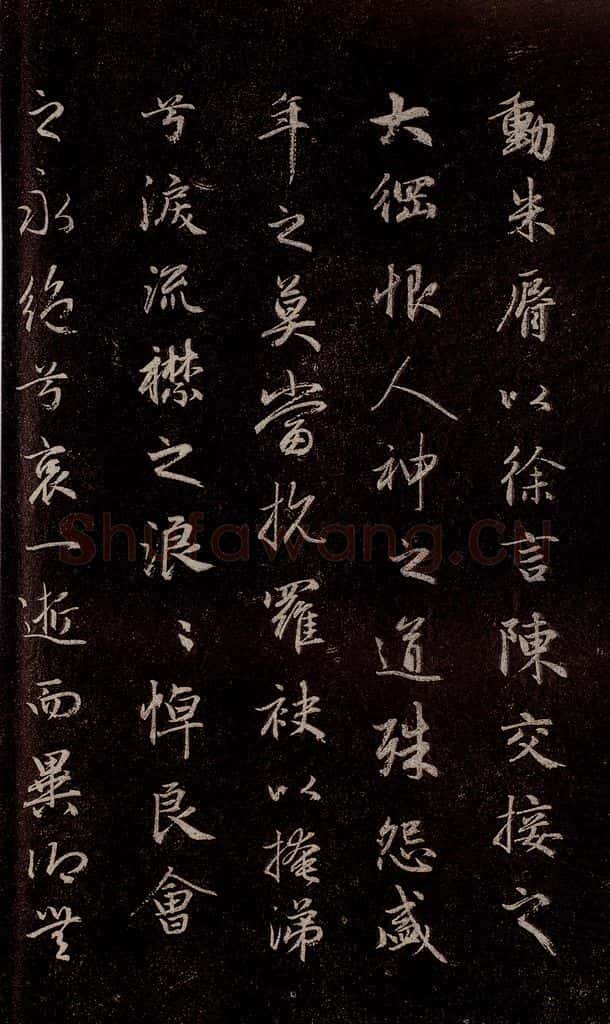 動朱脣以徐言陳交接之
大綱恨人神之道殊怨盛
年之莫當抗羅袂以掩涕
兮淚流襟之浪〻悼良會
之永絕兮哀一逝而異鄉無
Shufawang.cn